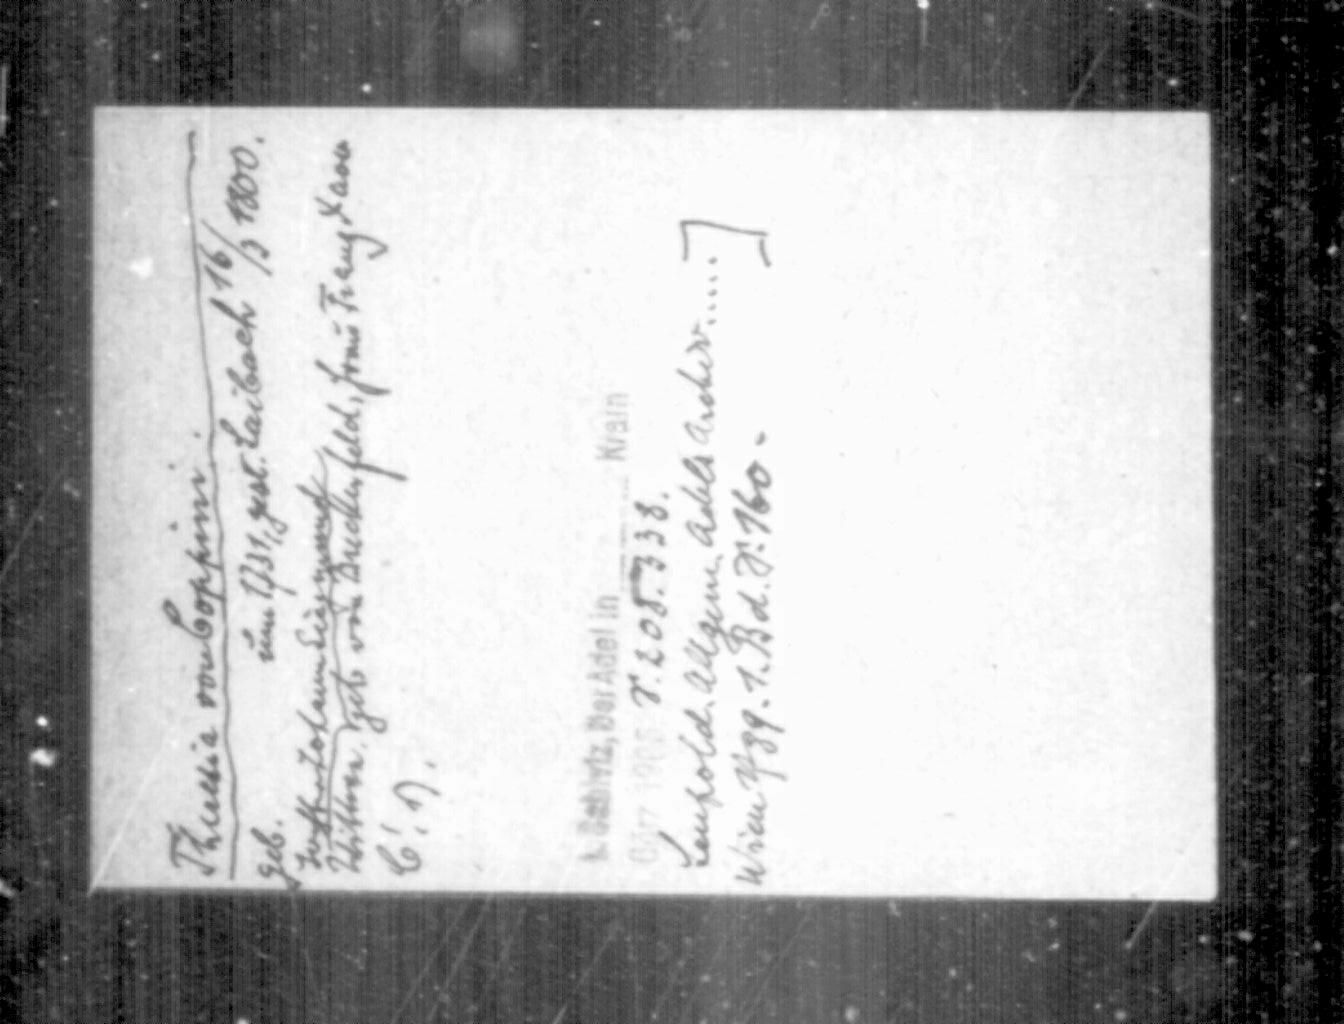 Theresia von Coppini.
geb. um 1731, gest. Laibach 16/3 1800.
Witwe, geb. von Breckerfeld, Franz Xaver
C! ?).
v. Schiwiz, Der Adel in Krain
Görz 1905 S. 208. 338.
Leupold. Allgem. Adels Archiv.....]
Wien 789. 1. Bd. S. 160.